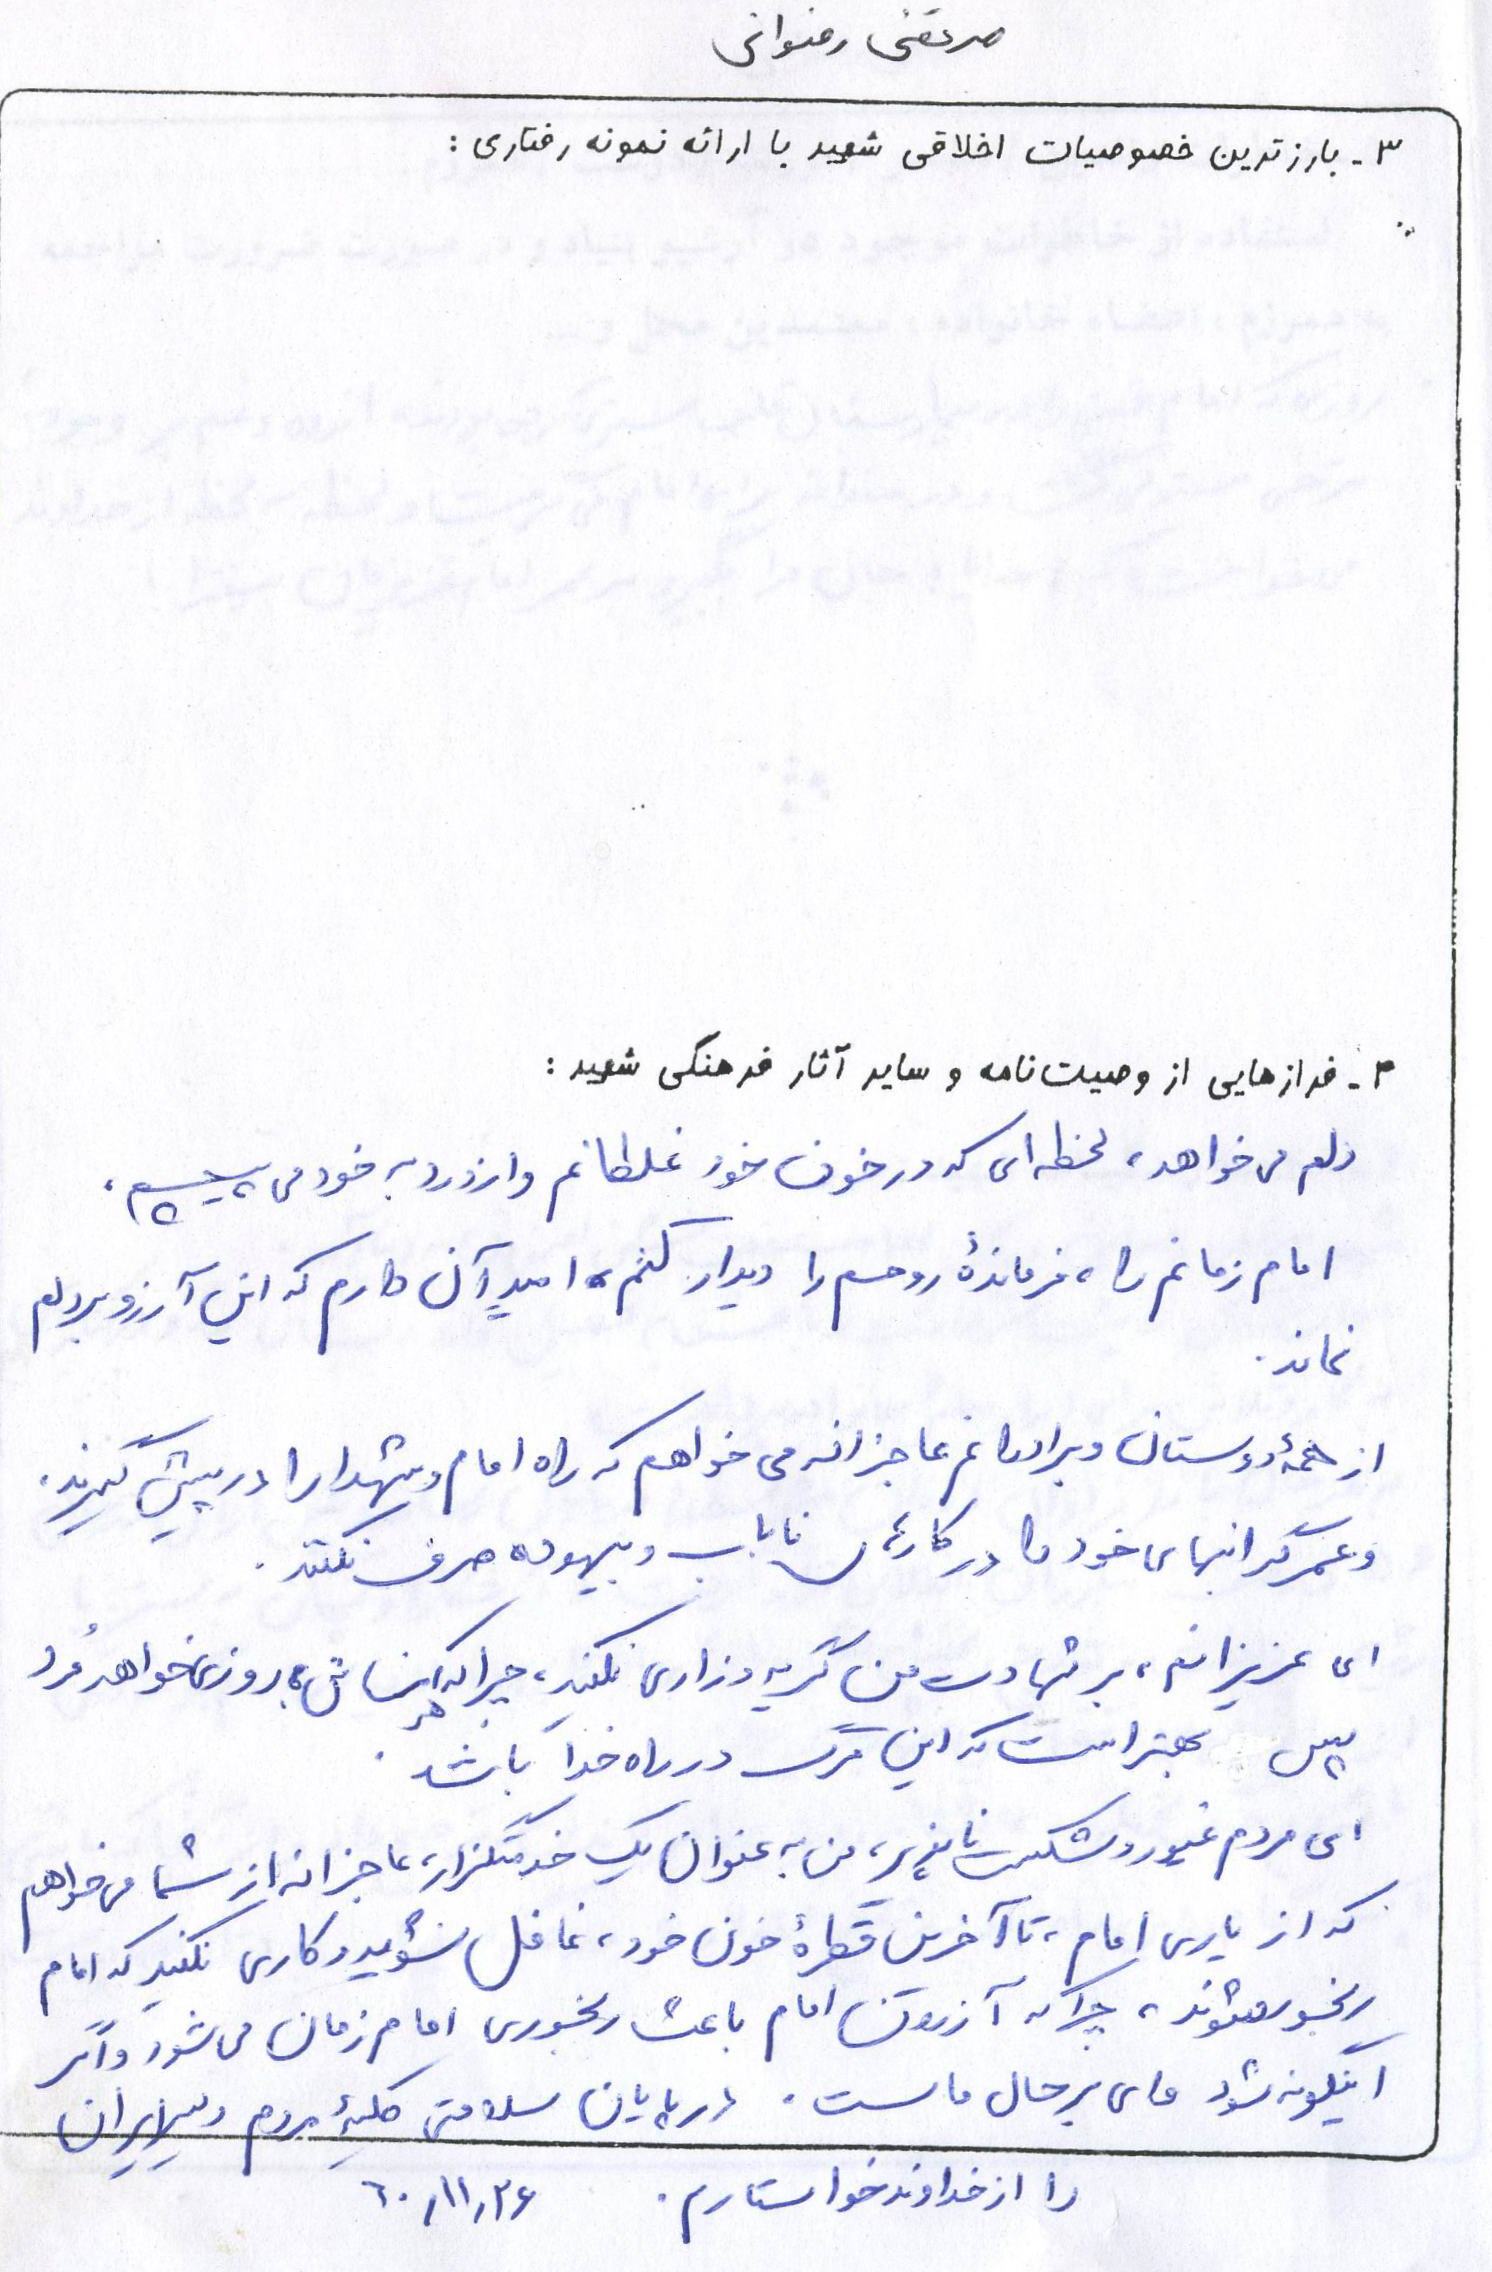 مرتضی رضوانی
۳- بارزترین خصوصیات اخلاقی شهید با ارائه نمونه رفتاری :
۴- فرازهایی از وصیت‌نامه و سایر آثار فرهنگی شهید :
دلم می‌خواهد، لحظه‌ای که در خون خود غلطانم و از درد به خود می‌پیچم،
امام زمانم را، فرماندۀ روحم را دیدار کنم، امید آن دارم که این آرزو بر دلم
نماند.
از همۀ دوستان و برادرانم عاجزانه می‌خواهم که راه امام و شهدا را در پیش گیرند.
و عمر گرانبهای خود را در کارهای ناباب و بیهوده صرف نکنند.
ای عزیزانم، بر شهادت من گریه و زاری نکنید، چرا که هر انسانی، روزی خواهد مُرد
پس بهتر است که این مرگ در راه خدا باشد.
ای مردم غیور و شکست‌ناپذیر، من به عنوان یک خدمتگزار، عاجزانه از شما می‌خواهم
که از یاری امام، تا آخرین قطرۀ خون خود، غافل نشوید و کاری نکنید که امام
رنجور شوند، چرا که آزردن امام باعث رنجوری امام زمان می‌شود و اگر
اینگونه شود وای بر حال ماست. در پایان سلامتی کلیۀ مردم دلیر ایران
را از خداوند خواستارم. ۶۰,۱۱,۲۶